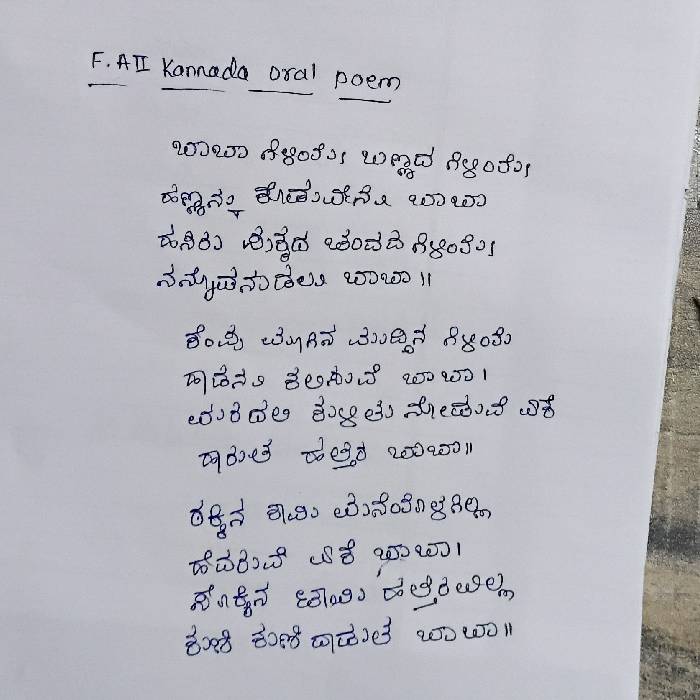 F.A II Kannada oral poem
ಬಾಬಾ ಗಿಳಿಯೇ ಬಣ್ಣದ ಗಿಳಿಯೇ
ಹಣ್ಣನ್ನು ಕೊಡುವೆನು ಬಾಬಾ
ಹಸಿರು ಪುಕ್ಕದ ಚಂದದ ಗಿಳಿಯೇ
ನನ್ನೊಡನಾಡಲು ಬಾಬಾ ॥
ಕೆಂಪು ಮೂಗಿನ ಮುದ್ದಿನ ಗಿಳಿಯೇ
ಹಾಡನು ಕಲಿಸುವೆ ಬಾಬಾ ।
ಮರದಲಿ ಕುಳಿತು ನೋಡುವೆ ಏಕೆ
ಹಾರುತ ಹತ್ತಿರ ಬಾಬಾ ॥
ಕಳ್ಳಿನ ಕಾಮಿ ಮನೆಯೊಳಗಿಲ್ಲ
ಹೆದರುವೆ ಏಕೆ ಬಾಬಾ ।
ಸೊಕ್ಕಿನ ನಾಯಿ ಹತ್ತಿರವಿಲ್ಲ
ಕುಣಿ ಕುಣಿದಾಡುತ ಬಾಬಾ ॥